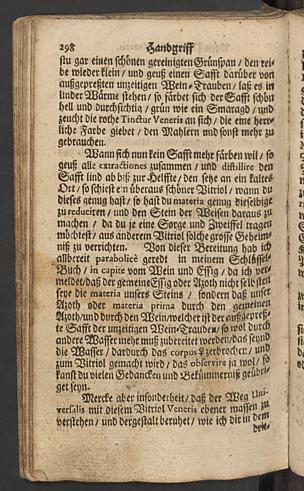 298 Handgriff
stu gar einen schönen gereinigten Grünspan / den rei-
be wieder klein / und geuß einen Safft darüber von
außgepreßten unzeitigen Wein-Trauben / laß es in
linder Wärme stehen / so färbet sich der Safft schön
hell und durchsichtig / grün wie ein Smaragd / und
zeucht die rothe Tinctur Veneris an sich / die eine herr-
liche Farbe giebet / den Mahlern und sonst mehr zu
gebrauchen.
Wann sich nun kein Safft mehr färben wil / so
geuß alle extractiones zusammen / und distillire den
Safft lind ab biß zur Helffte / den setze an ein kaltes
Ort / so schiest ein überaus schöner Vitriol / wann du
dieses genug hast / so hast du materia genug dieselbige
zu reduciren / und den Stein der Weisen daraus zu
machen / da du je eine Sorge und Zweiffel tragen
möchtest / aus anderem Vitriol solche grosse Geheim-
niß zu verrichten. Von dieser Bereitung hab ich
allbereit parabolicè geredt in meinem Schlüssel-
Buch / in capite vom Wein und Essig / da ich ver-
meldet / daß der gemeine Essig oder Azoth nicht selbsten
seye die materia unsers Steins / sondern daß unser
Azoth oder materia prima durch den gemeinen
Azoth / und durch den Wein / welcher ist der außgepreß-
te Safft der unzeitigen Wein-Trauben / so wol durch
andere Wasser mehr muß zubereitet werden / das seynd
die Wasser / dardurch das corpus ♀ zerbrochen / und
zum Vitriol gemacht wird / das observire ja wol / so
kanst du vielen Gedancken und Bekümmerniß geübri-
get seyn.
Mercke aber insonderheit / daß der Weg Uni-
versalis mit diesem Vitriol Veneris ebener massen zu
verstehen / und dergestalt beruhet / wie ich dir in dem